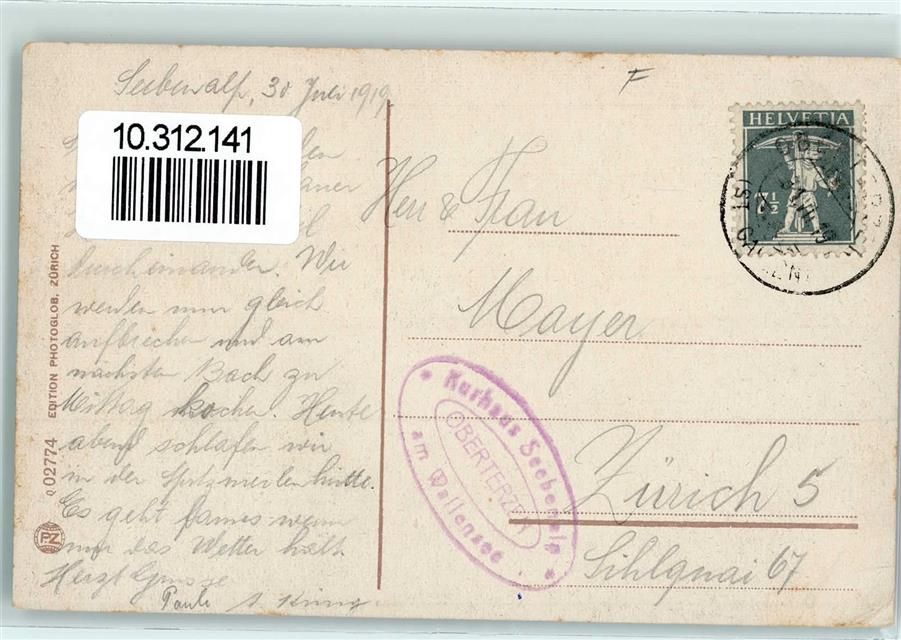 Seebenalp, 30 Juli 1919
10.312.141
durcheinander. Wir
werden nun gleich
aufbrechen und am
nächsten Bach zu
Mittag kochen. Heute
abend schlafen wir
in der Spitzmeilenhütte.
Es geht famos wenn
nur das Wetter hält
Herzl Grüsse
F
HELVETIA
7 1/2
Herr & Frau
Mayer
Zürich 5
Sihlquai 67
* Kurhaus Seebenalp *
OBERTERZEN
am Wallensee
Q 02774 EDITION PHOTOGLOB, ZÜRICH
PZ